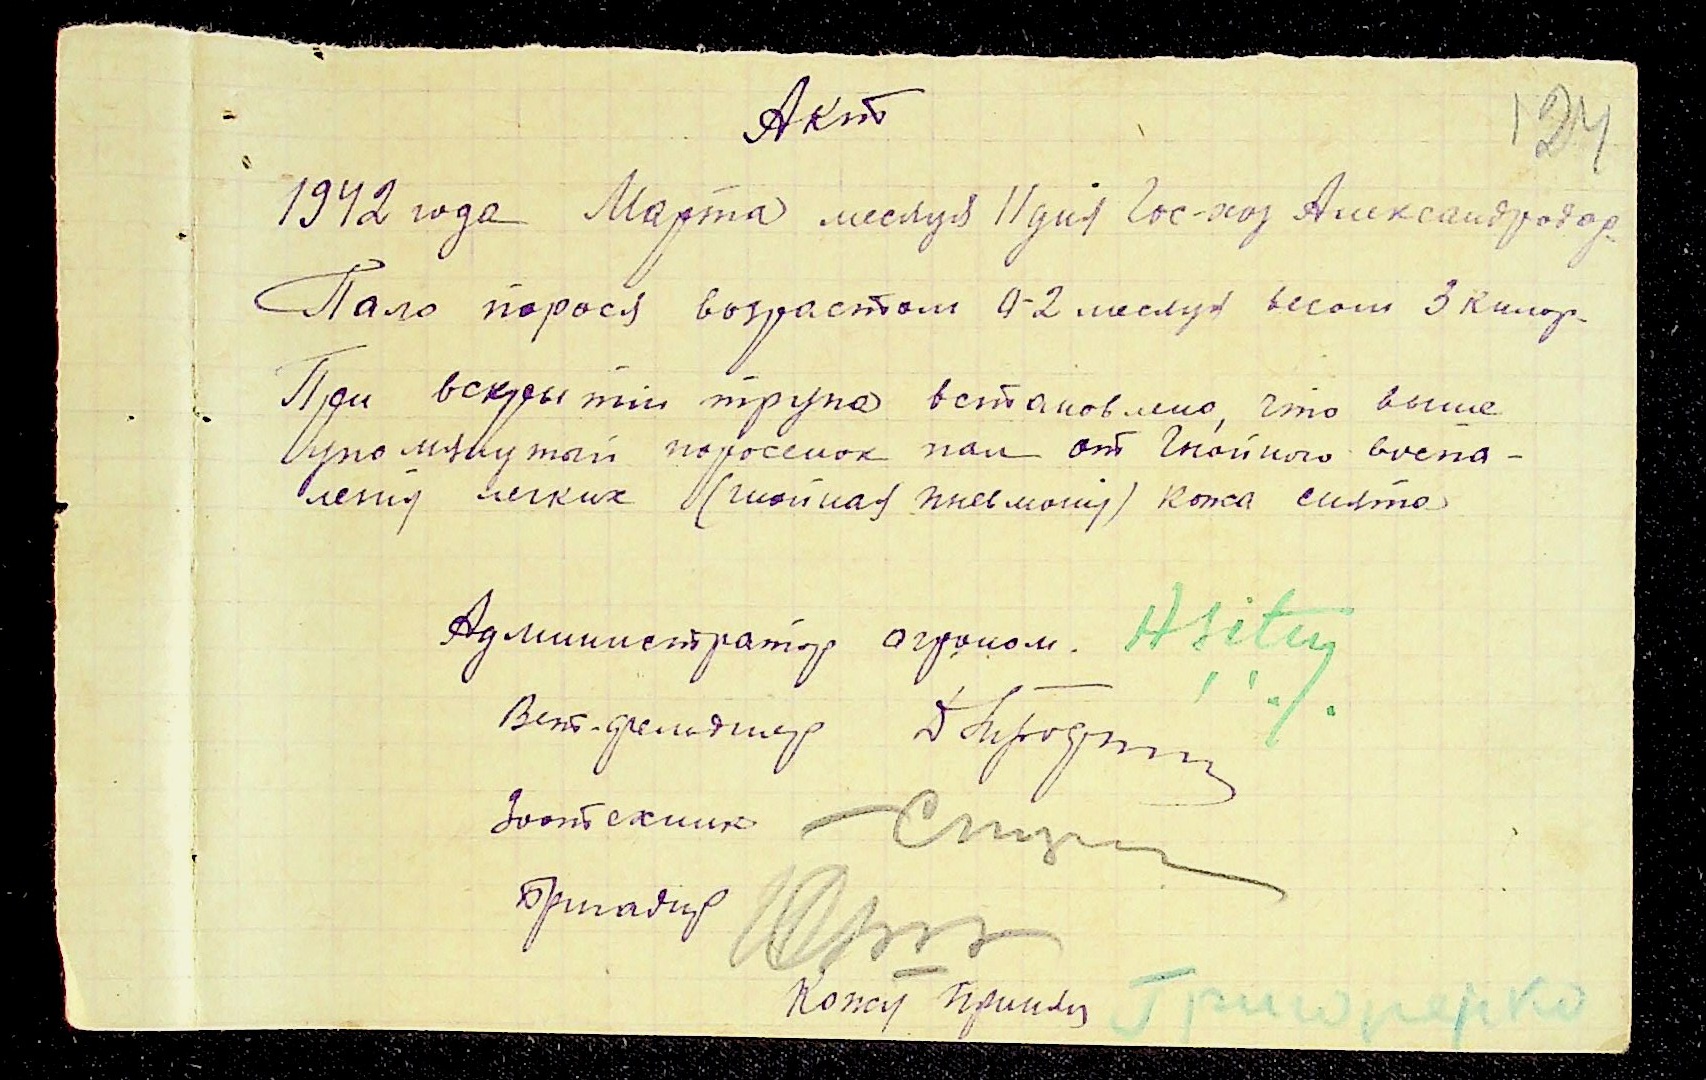 124
Акт
1942 года Марта месяця 11 дня Гос-хоз Александродар.
Пало порося возрастом 0-2 месяця весом 3 килогр.
При вскрытии трупа встановлено, что выше
упомянутый поросенок пал от Гнойного воспа-
ления легких (гнойная пневмония) кожа снята
Администратор агроном.
Вет-фельдшер
Зоотехник
Бригадир
Кожу принял Григоренко